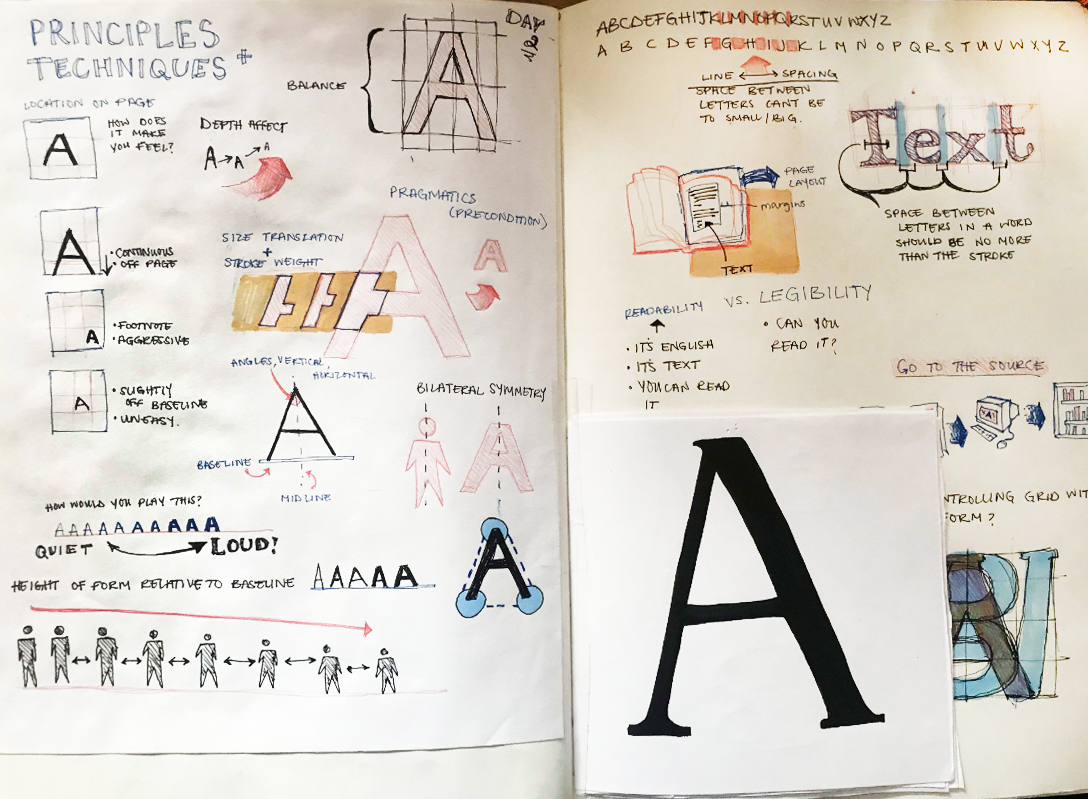 PRINCIPLES +
TECHNIQUES
DAY
1/2
LOCATION ON PAGE
A
HOW DOES
IT MAKE
YOU FEEL?
DEPTH AFFECT
A → A → A
BALANCE
A
A
• CONTINUOUS
• OFF PAGE
A
• FOOTNOTE
• AGGRESSIVE
A
• SLIGHTLY
OFF BASELINE
• UNEASY.
PRAGMATICS
(PRECONDITION)
A
A
SIZE TRANSLATION
+
STROKE WEIGHT
ANGLES, VERTICAL,
HORIZONTAL
A
BASELINE
MIDLINE
BILATERAL SYMMETRY
A
HOW WOULD YOU PLAY THIS?
AAAAAAAAA
QUIET
LOUD!
HEIGHT OF FORM RELATIVE TO BASELINE AAAAA
A
ABCDEFGHIJKLMNOPQRSTUVWXYZ
A B C D E F G H I J K L M N O P Q R S T U V W X Y Z
LINE ↔ SPACING
SPACE BETWEEN
LETTERS CANT BE
TO SMALL/BIG.
Text
SPACE BETWEEN
LETTERS IN A WORD
SHOULD BE NO MORE
THAN THE STROKE
PAGE
LAYOUT
margins
TEXT
READABILITY VS. LEGIBILITY
• IT'S ENGLISH
• IT'S TEXT
• YOU CAN READ
IT
• CAN YOU
READ IT?
GO TO THE SOURCE
"A"
NTROLLING GRID WIT
FORM?
A